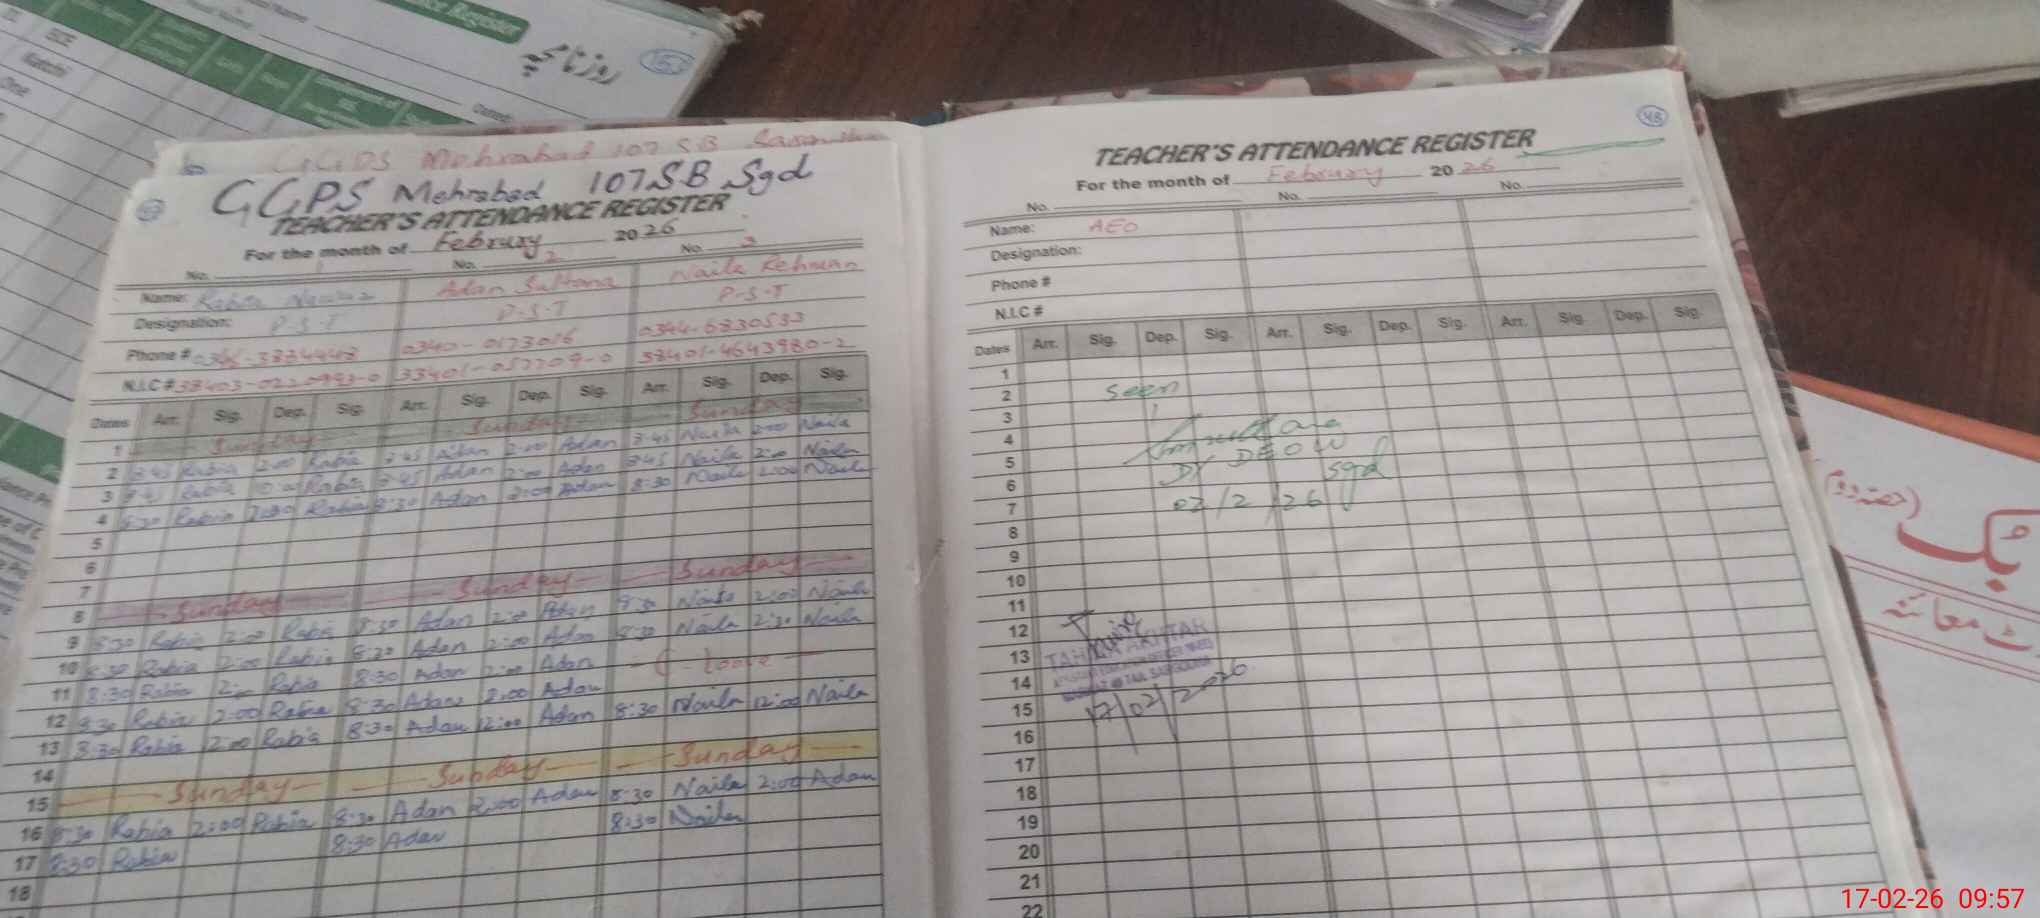 Register
روزنامچہ
ECE
Katchi
One
GGPS Mehrabad 107 SB
GGPS Mehrabad 107SB Sgd
TEACHER'S ATTENDANCE REGISTER
For the month of February 2026
No. 1 No. 2 No. 3
Name: Rabia Nawaz Adan Sultana Naila Rehman
Designation: P-S-T P-S-T P-S-T
Phone # 0340-0173016 0344-6830533
N.I.C #
Dates Arr. Sig. Dep. Sig. Arr. Sig. Dep. Sig. Arr. Sig. Dep. Sig.
1 Sunday Sunday Sunday
2 8:45 Rabia 2:00 Rabia 8:45 Adan 2:00 Adan 8:45 Naila 2:00 Naila
3 8:45 Rabia Rabia 8:45 Adan 2:00 Adan 8:45 Naila 2:00 Naila
4 8:30 Rabia 2:00 Rabia 8:30 Adan 2:00 Adan 8:30 Naila 2:00 Naila
5
6
7
8 Sunday Sunday Sunday
9 8:30 Rabia 2:00 Rabia 8:30 Adan 2:00 Adan 8:30 Naila 2:00 Naila
10 8:30 Rabia 2:00 Rabia 8:30 Adan 2:00 Adan 8:30 Naila 2:30 Naila
11 8:30 Rabia 2:00 Rabia 8:30 Adan 2:00 Adan C-Leave
12 8:30 Rabia 2:00 Rabia 8:30 Adan 2:00 Adan 8:30 Naila 12:00 Naila
13 8:30 Rabia 2:00 Rabia 8:30 Adan 12:00 Adan
14
15 Sunday Sunday Sunday
16 8:30 Rabia 2:00 Rabia 8:30 Adan 2:00 Adan 8:30 Naila 2:00 Adan
17 8:30 Rabia 8:30 Adan 8:30 Naila
18
48
TEACHER'S ATTENDANCE REGISTER
For the month of February 2026
No. No. No.
Name: AEO
Designation:
Phone #
N.I.C #
Dates Arr. Sig. Dep. Sig. Arr. Sig. Dep. Sig. Arr. Sig. Dep. Sig.
1
2 seen
3
4
5 Dy DEO W
6 Sgd
7 02/2/26
8
9
10
11
12
13 AKHTAR
14
15 17/02/2026
16
17
18
19
20
21
22
(حصہ دوم)
بک
معائنہ
17-02-26 09:57